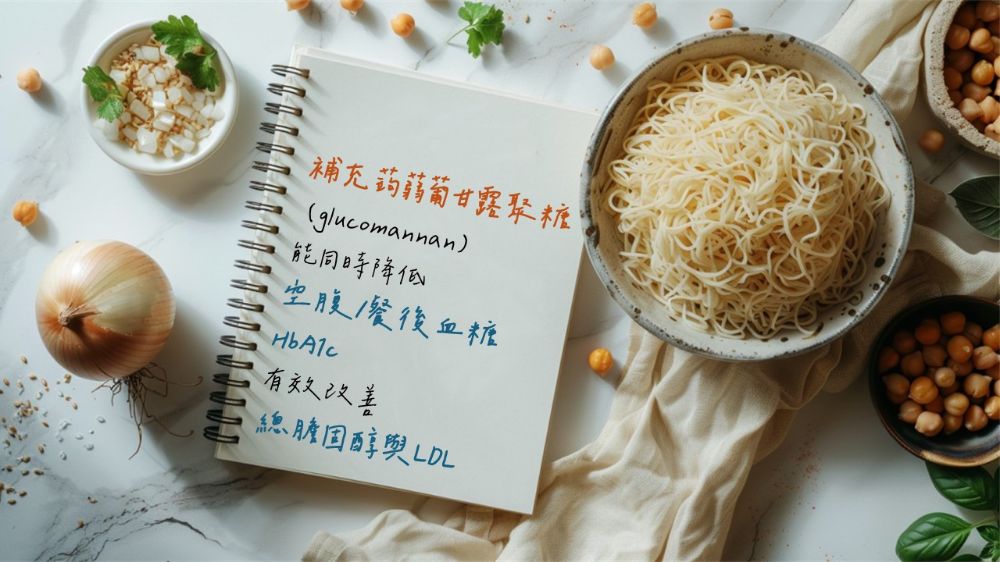 補充蒟蒻葡甘露聚糖
(glucomannan)
能同時降低
空腹/餐後血糖
HbA1c
有效改善
總膽固醇與LDL